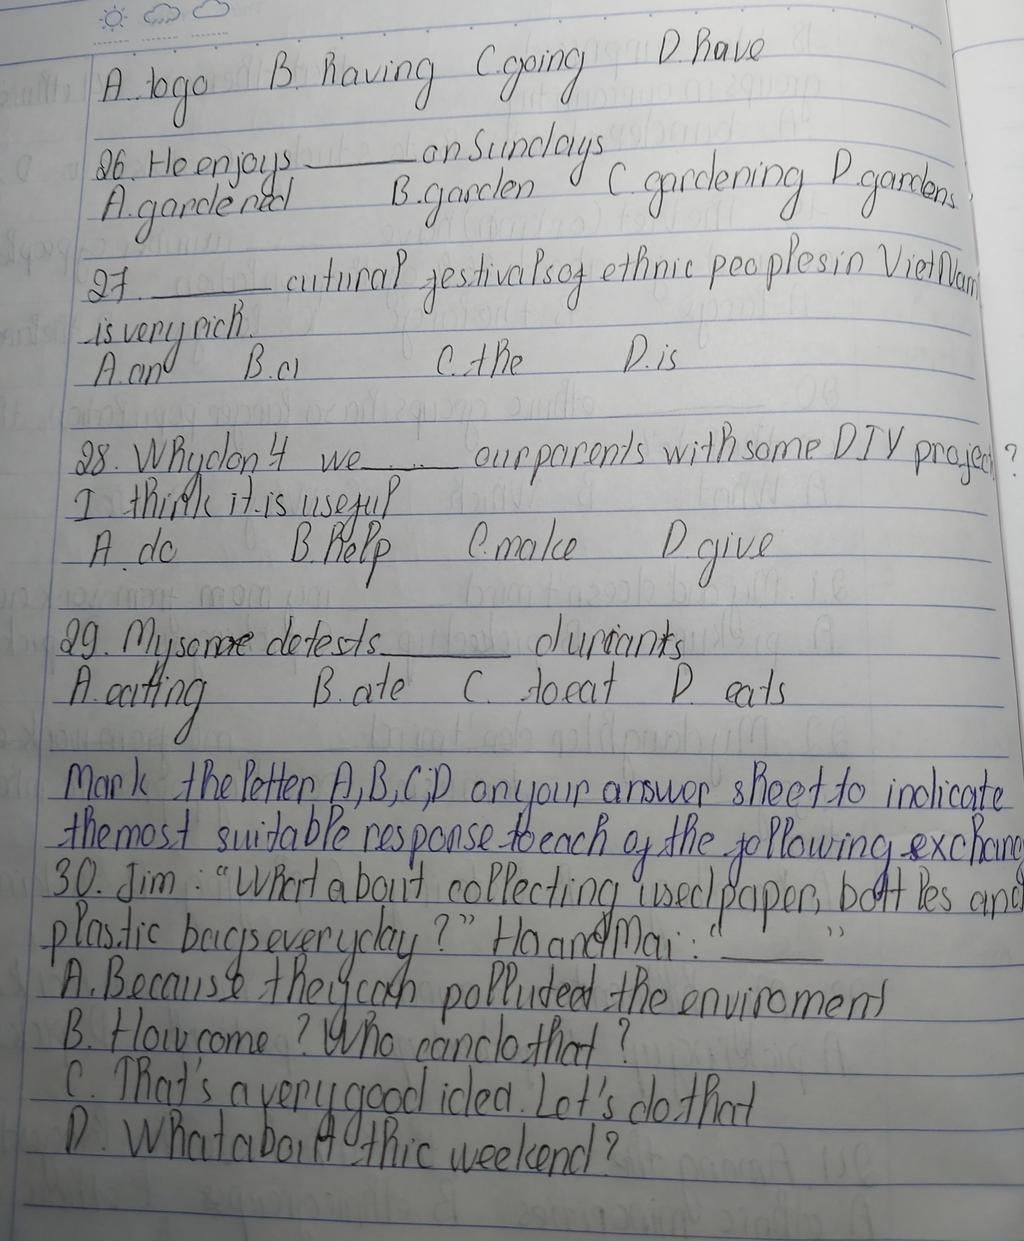 A. to go B. having C. going D. have
26. He enjoys ______ on Sundays
A. gardened B. garden C. gardening D. gardens
27. ______ cutural festivals of ethnic peoples in Viet Nam
is very rich.
A. an B. a C. the D. is
28. Why don't we ______ our parents with some DIY project?
I think it is useful
A. do B. help C. make D. give
29. My detests ______ duriants
A. eatting B. ate C. to eat D. eats
Mark the letter A, B, C, D on your answer sheet to indicate
the most suitable response to each of the following exchang
30. Jim: "What about collecting used paper, bottles and
plastic bags everyday?" Ho and Mai: "______"
A. Because they can polluted the enviroment
B. How come? Who can do that?
C. That's a very good idea. Let's do that
D. What about this weekend?